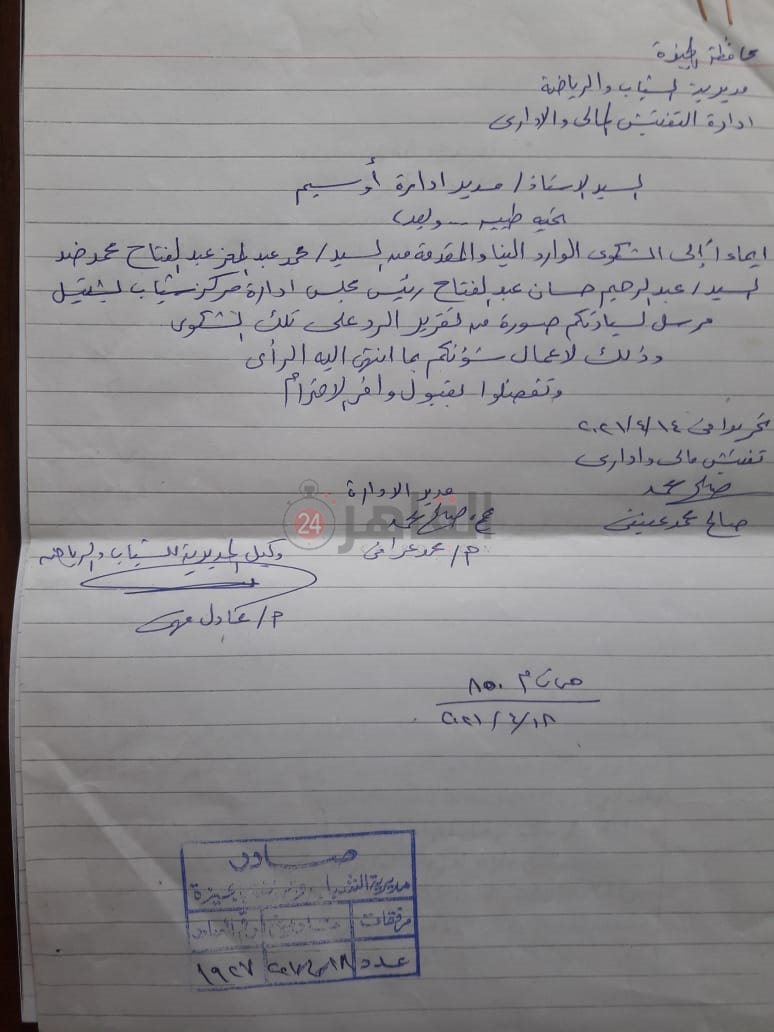 محافظة الجيزة
مديرية الشباب والرياضة
ادارة التفتيش المالى والادارى
السيد الاستاذ / مدير ادارة أوسيم
تحيه طيبه وبعد
ايماءا إلى الشكوى الوارد الينا والمقدمة من السيد / محمد عبد المعز عبد الفتاح محمد ضد
السيد / عبد الرحيم حسان عبد الفتاح رئيس مجلس ادارة مركز شباب بشتيل
مرسل لسيادتكم صورة من تقرير الرد على تلك الشكوى
وذلك لاعمال شؤنكم بما انتهى اليه الرأى
وتفضلوا بقبول وافر الاحترام
تحريرا فى ٢٠٢١/٤/١٤
تفتيش مالى وادارى
صالح محمد
صالح محمد
مدير الادارة
صالح محمد
م / محمد عرابى
القاهرة 24
وكيل المديرية للشباب والرياضه
م / عادل
٨٥٠
٢٠٢١/٤/١٨
صادر
مديرية الشباب بالجيزة
مرفقات
عدد
١٩٢٧